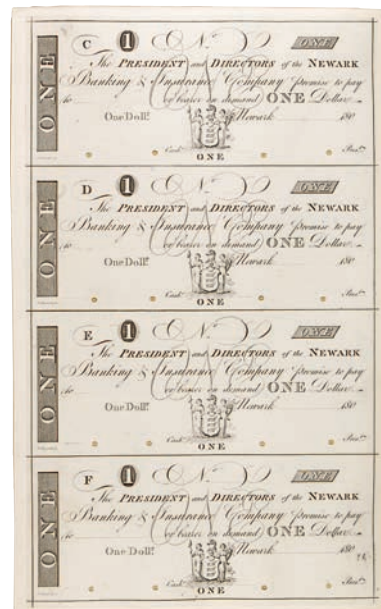 ONE
C 1 No. ONE
The PRESIDENT and DIRECTORS of the NEWARK
Banking & Insurance Company promise to pay
to or bearer on demand ONE Dollar
One Doll.r Newark 180
Cash.r Pres.t
ONE
ONE
D 1 No. ONE
The PRESIDENT and DIRECTORS of the NEWARK
Banking & Insurance Company promise to pay
to or bearer on demand ONE Dollar
One Doll.r Newark 180
Cash.r Pres.t
ONE
ONE
E 1 No. ONE
The PRESIDENT and DIRECTORS of the NEWARK
Banking & Insurance Company promise to pay
to or bearer on demand ONE Dollar
One Doll.r Newark 180
Cash.r Pres.t
ONE
ONE
F 1 No. ONE
The PRESIDENT and DIRECTORS of the NEWARK
Banking & Insurance Company promise to pay
to or bearer on demand ONE Dollar
One Doll.r Newark 180
Cash.r Pres.t
ONE